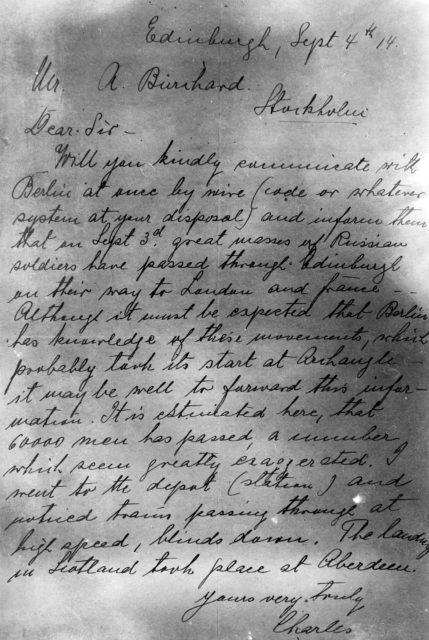 Edinburgh, Sept 4th 14.
Mr. A. Burchard.
Stockholm
Dear Sir –
Will you kindly communicate with
Berlin at once by wire (code or whatever
system at your disposal) and inform them
that on Sept 3d great masses of Russian
soldiers have passed through Edinburgh
on their way to London and France –
Although it must be expected that Berlin
has knowledge of these movements, which
probably took its start at Archangle –
it may be well to forward this infor-
mation. It is estimated here, that
60000 men has passed, a number
which seem greatly exaggerated. I
went to the depot (station) and
noticed trains passing through at
high speed, blinds down. The landing
in Scotland took place at Aberdeen.
Yours very truly
Charles